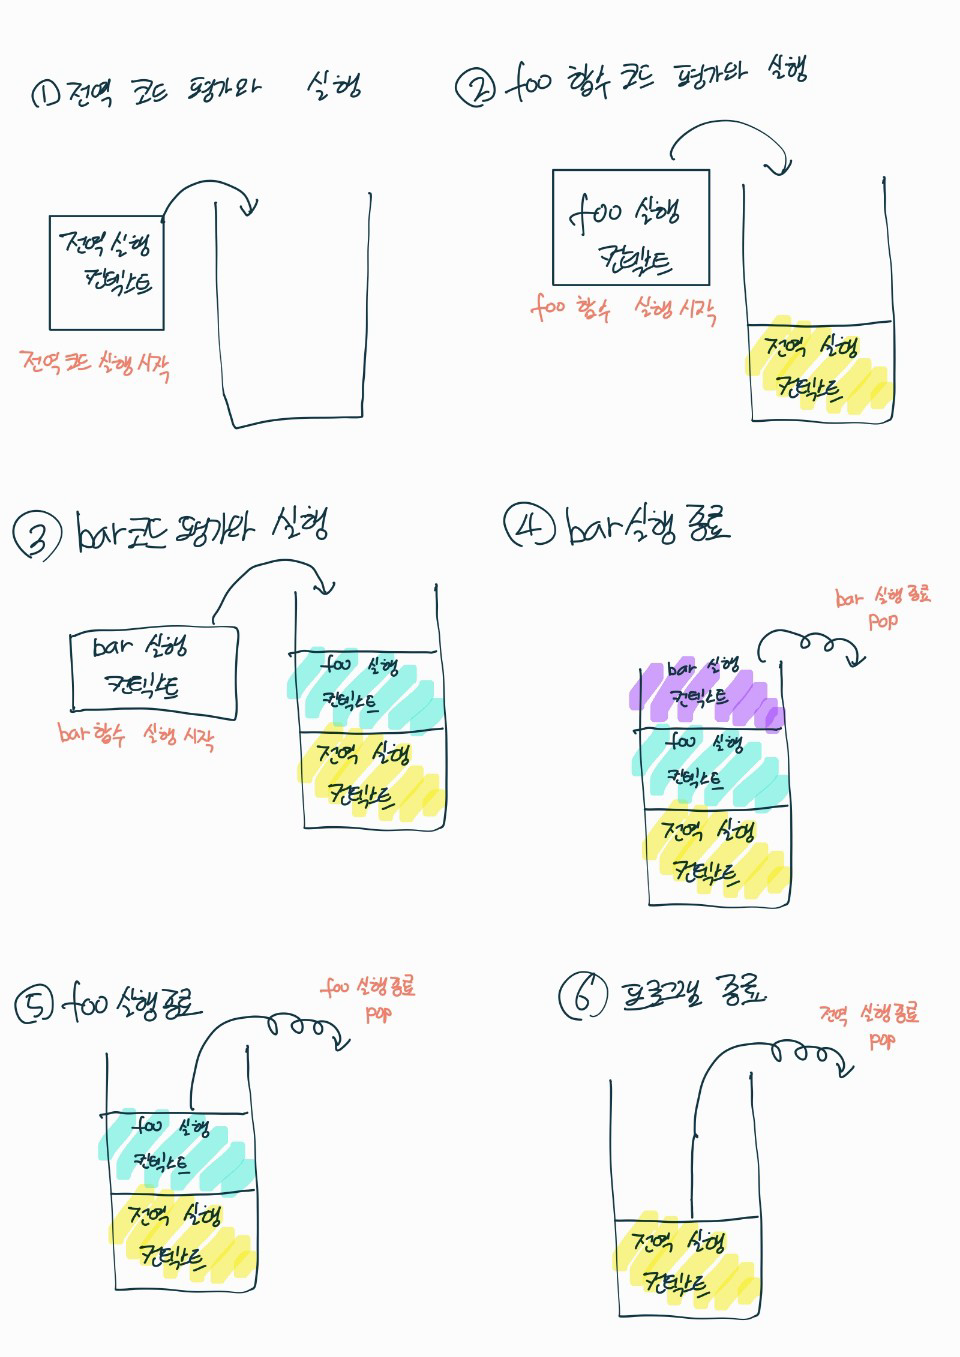 ① 전역 코드 평가와 실행
전역 실행
컨텍스트
전역 코드 실행 시작
② foo 함수 코드 평가와 실행
foo 실행
컨텍스트
foo 함수 실행 시작
전역 실행
컨텍스트
③ bar 코드 평가와 실행
bar 실행
컨텍스트
bar 함수 실행 시작
foo 실행
컨텍스트
전역 실행
컨텍스트
④ bar 실행 종료
bar 실행 종료
pop
bar 실행
컨텍스트
foo 실행
컨텍스트
전역 실행
컨텍스트
⑤ foo 실행 종료
foo 실행 종료
pop
foo 실행
컨텍스트
전역 실행
컨텍스트
⑥ 프로그램 종료
전역 실행 종료
pop
전역 실행
컨텍스트